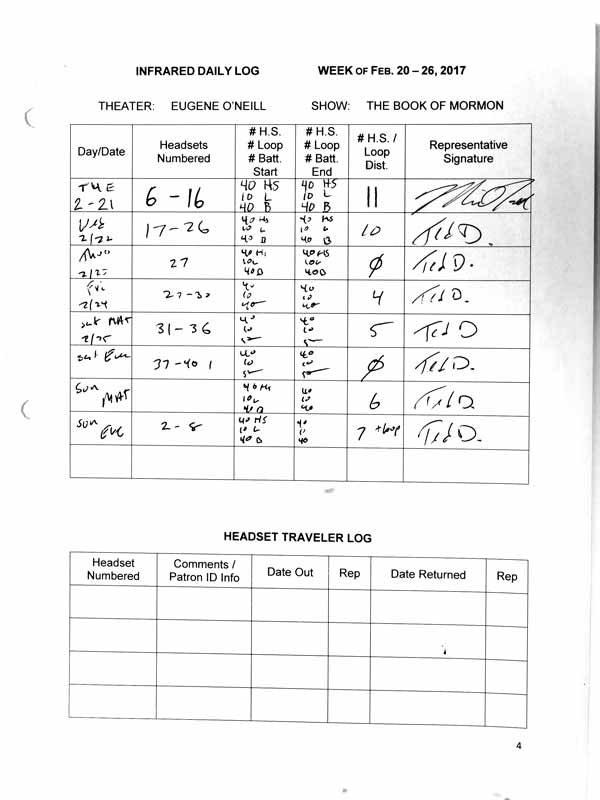 INFRARED DAILY LOG WEEK OF FEB. 20 – 26, 2017
THEATER: EUGENE O'NEILL SHOW: THE BOOK OF MORMON
Day/Date Headsets Numbered # H.S. # Loop # Batt. Start # H.S. # Loop # Batt. End # H.S. / Loop Dist. Representative Signature
TUE 2-21 6 - 16 40 HS 10 L 40 B 40 HS 10 L 40 B 11
2/22 17-26 40 HS 10 L 40 B 40 HS 10 L 40 B 10 Ted D.
27 40 HS 10L 40B 40HS 10L 40B ϕ Ted D.
Fri 2/24 27-30 40 10 40 40 10 40 4 Ted D.
Sat MAT 2/25 31-36 40 10 40 10 5 Ted D
Sat Eve 37-40 1 40 10 40 10 ϕ Ted D.
Sun MAT 40 HS 10L 40 B 40 10 40 6 Ted D.
Sun Eve 2-8 40 HS 10 L 40 B 40 10 40 7 + loop Ted D.
HEADSET TRAVELER LOG
Headset Numbered Comments / Patron ID Info Date Out Rep Date Returned Rep
4